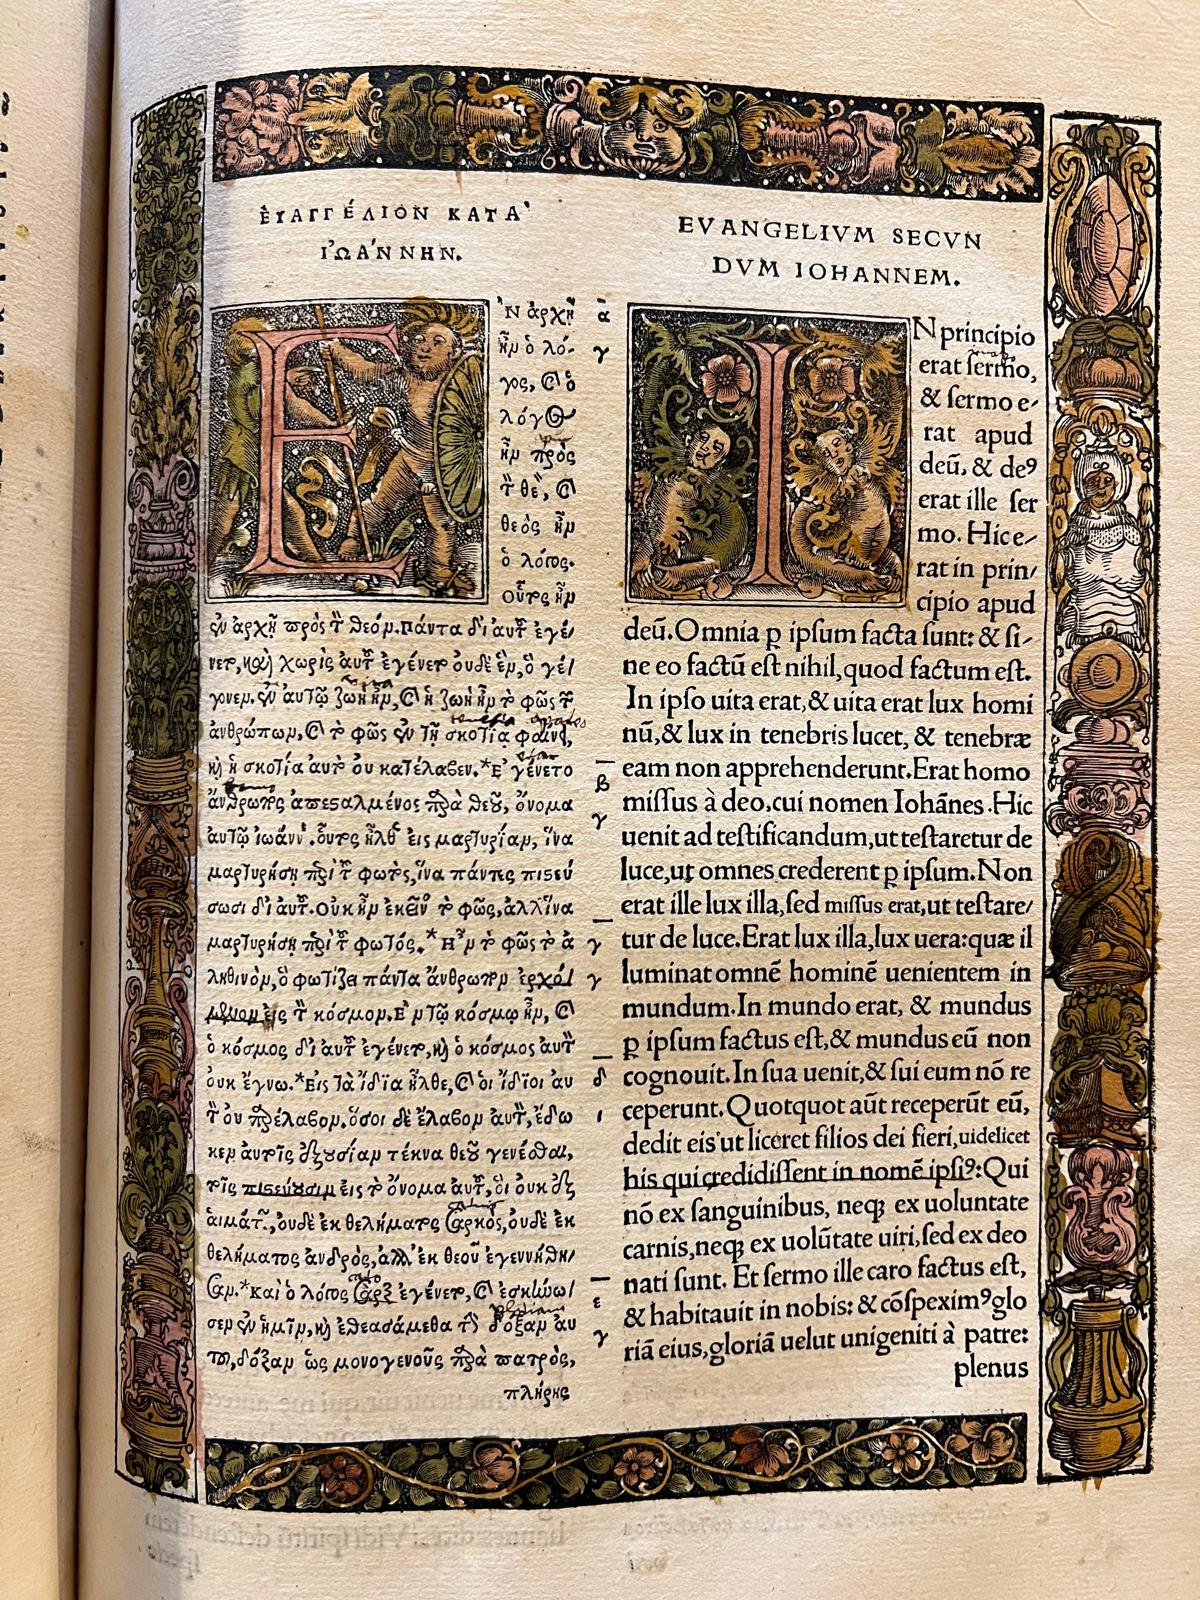 ἘΥΑΓΓΈΛΙΟΝ ΚΑΤᾺ
ἸΩΆΝΝΗΝ.
Ἐ
Ν ἀρχῇ
ἦν ὁ λό-
γος, καὶ ὁ
λόγος
ἦν πρὸς
τὸν θεὸν, καὶ
θεὸς ἦν
ὁ λόγος.
Οὗτος ἦν
ἐν ἀρχῇ πρὸς τὸν θεόν. πάντα δι' αὐτοῦ ἐγέ/
νετο, καὶ χωρὶς αὐτοῦ ἐγένετο οὐδὲ ἕν, ὃ γέ/
γονεν. ἐν αὐτῷ ζωὴ ἦν, καὶ ἡ ζωὴ ἦν τὸ φῶς τῶν
ἀνθρώπων, καὶ τὸ φῶς ἐν τῇ σκοτίᾳ φαίνει,
καὶ ἡ σκοτία αὐτὸ οὐ κατέλαβεν. *Ἐγένετο
ἄνθρωπος ἀπεσαλμένος παρὰ θεοῦ, ὄνομα
αὐτῷ ἰωάννης. οὗτος ἦλθεν εἰς μαρτυρίαν, ἵνα
μαρτυρήσῃ περὶ τοῦ φωτὸς, ἵνα πάντες πιστεύ
σωσι δι' αὐτοῦ. Οὐκ ἦν ἐκεῖνος τὸ φῶς, ἀλλ' ἵνα
μαρτυρήσῃ περὶ τοῦ φωτός. *Ἦν τὸ φῶς τὸ ἀ
ληθινὸν, ὃ φωτίζει πάντα ἄνθρωπον ἐρχό/
μενον εἰς τὸν κόσμον. Ἐν τῷ κόσμῳ ἦν, καὶ
ὁ κόσμος δι' αὐτοῦ ἐγένετο, καὶ ὁ κόσμος αὐτὸν
οὐκ ἔγνω. *Εἰς τὰ ἴδια ἦλθε, καὶ οἱ ἴδιοι αὐ
τὸν οὐ παρέλαβον. ὅσοι δὲ ἔλαβον αὐτὸν, ἔδω
κεν αὐτοῖς ἐξουσίαν τέκνα θεοῦ γενέσθαι,
τοῖς πιστεύουσιν εἰς τὸ ὄνομα αὐτοῦ, οἳ οὐκ ἐξ
αἱμάτων, οὐδὲ ἐκ θελήματος σαρκὸς, οὐδὲ ἐκ
θελήματος ἀνδρὸς, ἀλλ' ἐκ θεοῦ ἐγεννήθη/
σαν. *Καὶ ὁ λόγος σὰρξ ἐγένετο, καὶ ἐσκήνω/
σεν ἐν ἡμῖν, καὶ ἐθεασάμεθα τὴν δόξαν αὐ
τοῦ, δόξαν ὡς μονογενοῦς παρὰ πατρὸς,
πλήρης
α
γ
β
γ
γ
γ
δ
ι
ε
γ
EVANGELIVM SECVN
DVM IOHANNEM.
I
N principio
erat sermo,
& sermo e-
rat apud
deū, & deꝰ
erat ille ser
mo. Hic e-
rat in prin/
cipio apud
deū. Omnia ꝑ ipsum facta sunt: & si-
ne eo factū est nihil, quod factum est.
In ipso uita erat, & uita erat lux homi
nū, & lux in tenebris lucet, & tenebræ
eam non apprehenderunt. Erat homo
missus à deo, cui nomen Iohānes. Hic
uenit ad testificandum, ut testaretur de
luce, ut omnes crederent ꝑ ipsum. Non
erat ille lux illa, sed missus erat, ut testare/
tur de luce. Erat lux illa, lux uera: quæ il
luminat omnē hominē uenientem in
mundum. In mundo erat, & mundus
ꝑ ipsum factus est, & mundus eū non
cognouit. In sua uenit, & sui eum nō re
ceperunt. Quotquot aūt receperūt eū,
dedit eis ut liceret filios dei fieri, uidelicet
his qui credidissent in nomē ipsiꝰ: Qui
nō ex sanguinibus, neqꝫ ex uoluntate
carnis, neqꝫ ex uolūtate uiri, sed ex deo
nati sunt. Et sermo ille caro factus est,
& habitauit in nobis: & cōspeximꝰ glo
riā eius, gloriā uelut unigeniti à patre:
plenus